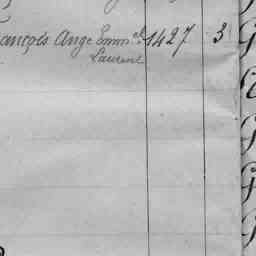 ançois Ange Emm.el 1427 3
Laurent